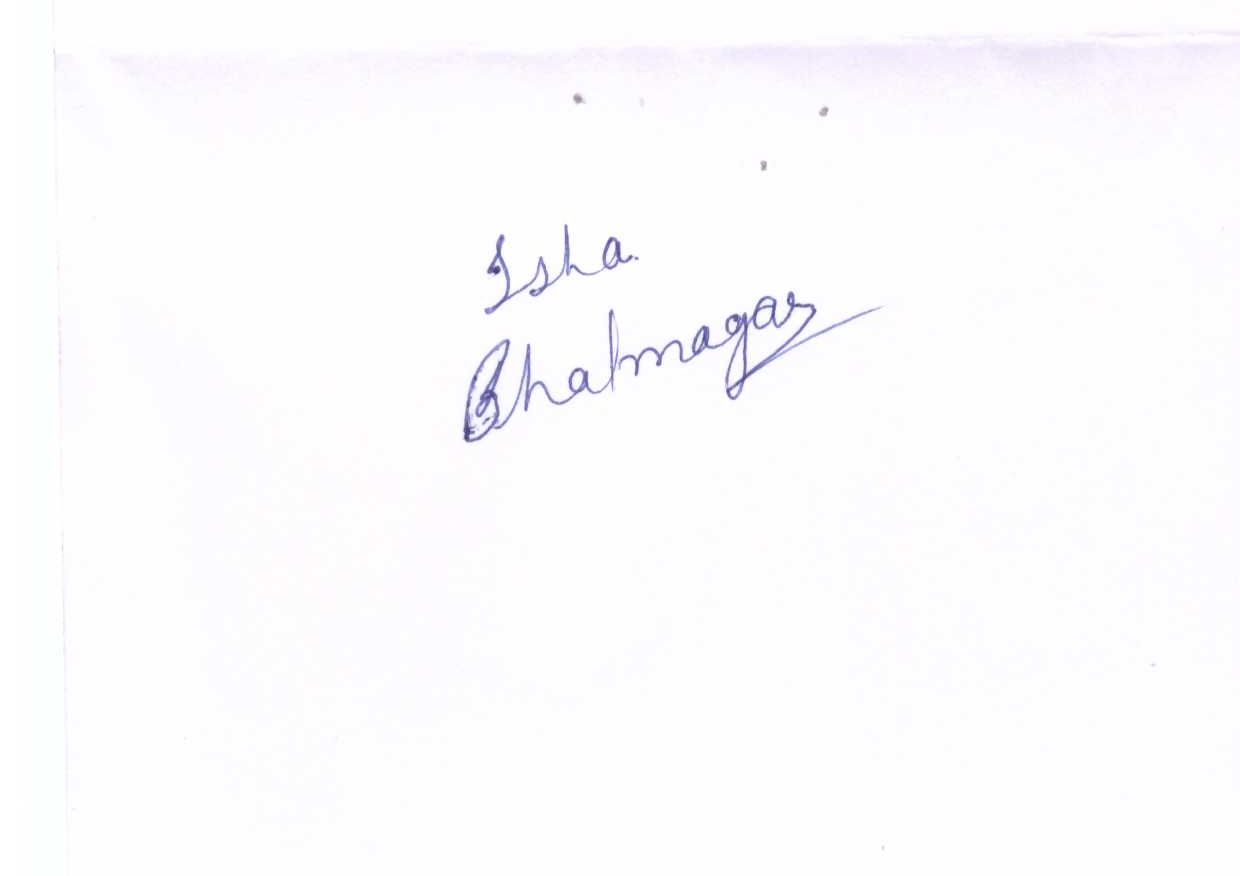 Isha
Bhatnagar